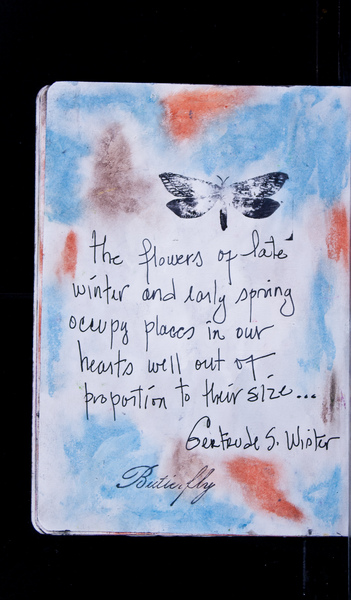 the flowers of late
winter and early spring
occupy places in our
hearts well out of
proportion to their size...
Gertrude S. Winter
Butterfly